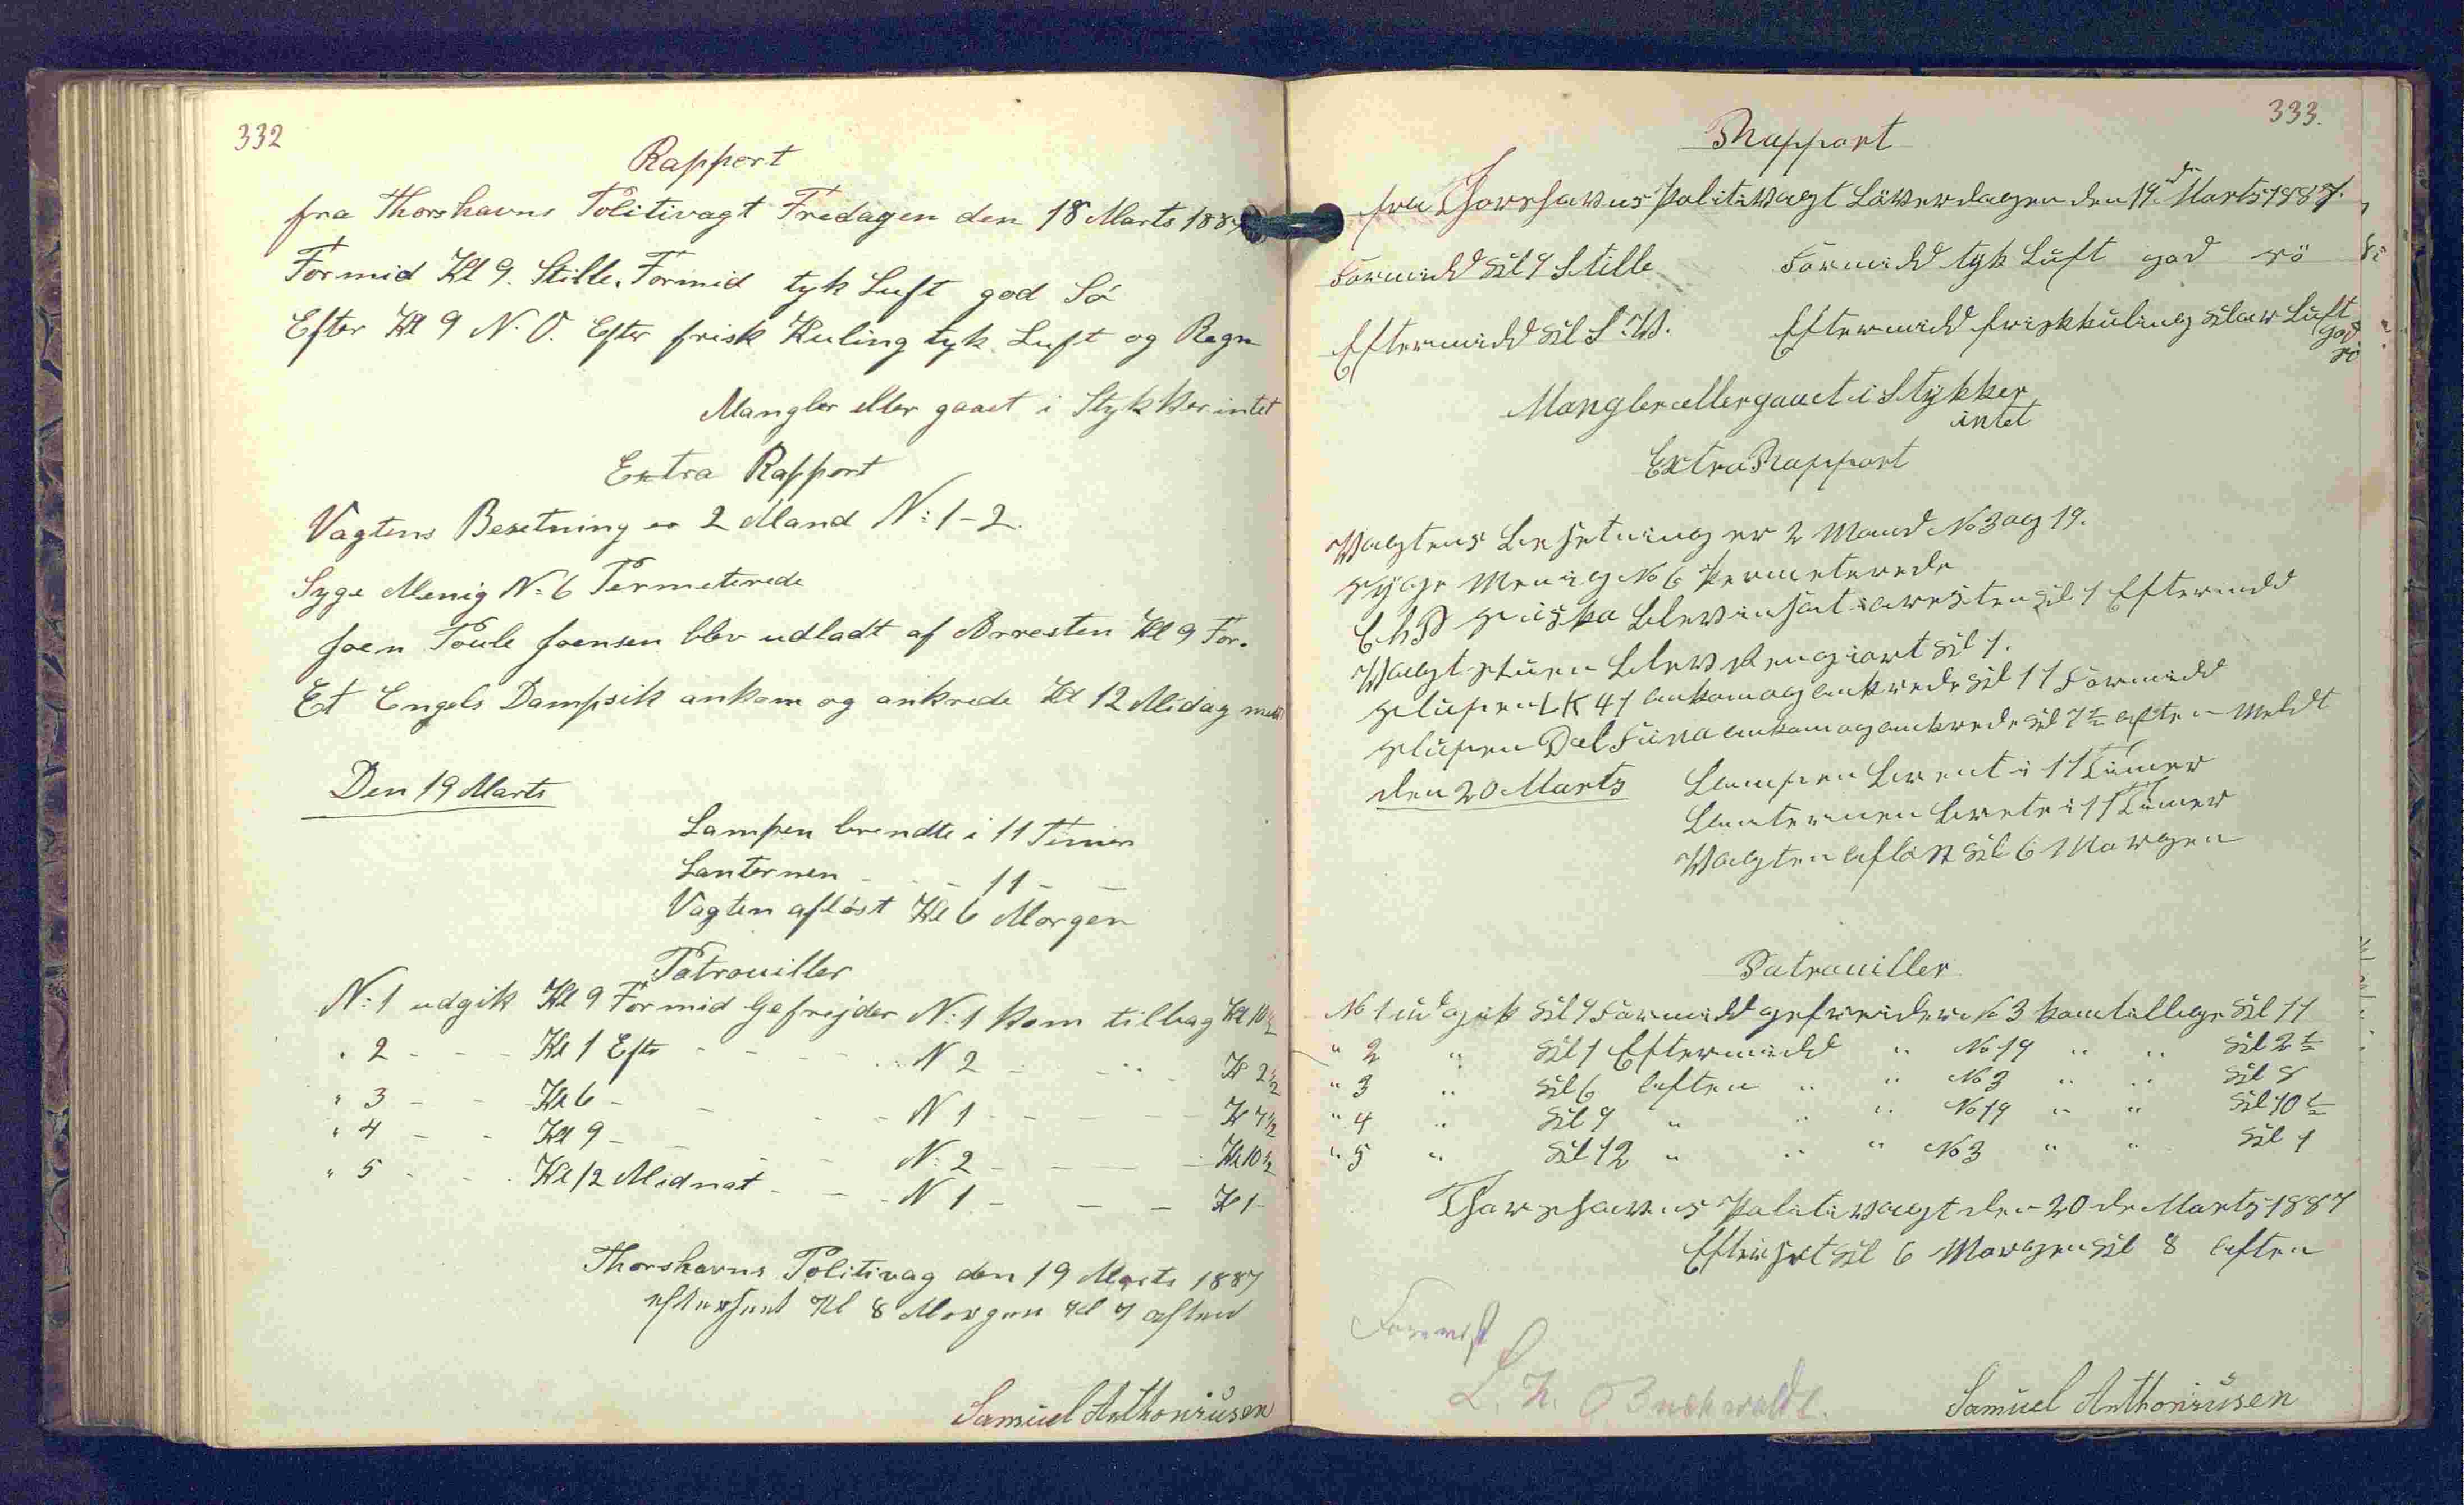 332
Rapport
fra Thorshavns Politivagt Fredagen den 18 Marts 1887
Formid Kl 9. Stille. Formid tyk Luft god Sö
Efter Kl 9 N. O. Efter frisk Kuling tyk Luft og Regn
Mangler eller gaaet i Stykker intet
Extra Rapport
Vagtens Besetning er 2 Mand N: 1-2.
Syge Menig N: 6 Permeterede
Joen Poule Joensen blev udladt af Arresten Kl 9 For.
Et Engels Dampsik ankom og ankrede Kl 12 Midag
Den 19 Marts
Lampen brendte i 11 Timer
Lanternen - - - 11 - -
Vagten aflöst Kl 6 Morgen
Patrouiller
N: 1 udgik Kl 9 Formid Gefrejder N: 1 kom tilbag Kl 10½
" 2 - - - Kl 1 Efter - - - - N 2 - - - Kl 2½
" 3 - - Kl 6 - - - - N 1 - - - - Kl 7½
" 4 - - Kl 9 - - - - N: 2 - - - - Kl 10½
" 5 - - Kl 12 Midnat - - - N 1 - - - Kl 1 -
Thorshavns Politivag den 19 Marts 1887
efterseet Kl 8 Morgen Kl 7 aften
Samuel Anthoniusen
333.
Rapport
fra Thorshavns Politivagt Löverdagen den 19de Marts 1887.
Formidd Kl 9 Stille Formidd tyk Luft god sö
Eftermidd Kl S. W. Eftermidd frisk kuling klar Luft god sö
Mangler eller gaaet i Stykker
intet
Extra Rapport
Vagtens besetning er 2 Mand No 3 og 19.
syge Menig No 6 Permeterede
blev insat i aresten Kl 1 Eftermidd
Vagtstuen blev Rengiort Kl 1.
slupen LK 41 ankom og ankrede Kl 11 Formidd
slupen Delfina ankom og ankrede Kl 7½ aften Meldt
den 20 Marts Lampen brent i 11 Timer
Lanternen brente i 11 Timer
Vagten aflöst Kl 6 Morgen
Patrouiller
No 1 udgik Kl 9 Formidd gefreider No 3 kom tilbage Kl 11
" 2 " Kl 1 Eftermidd " No 19 " " Kl 2½
" 3 " Kl 6 aften " " No 3 " " Kl 8
" 4 " Kl 9 " " " No 19 " " Kl 10½
" 5 " Kl 12 " " " No 3 " " Kl 1
Thorshavns Politivagt den 20 de Marts 1887
Efterset Kl 6 Morgen Kl 8 aften
Forevist
Samuel Anthoniusen